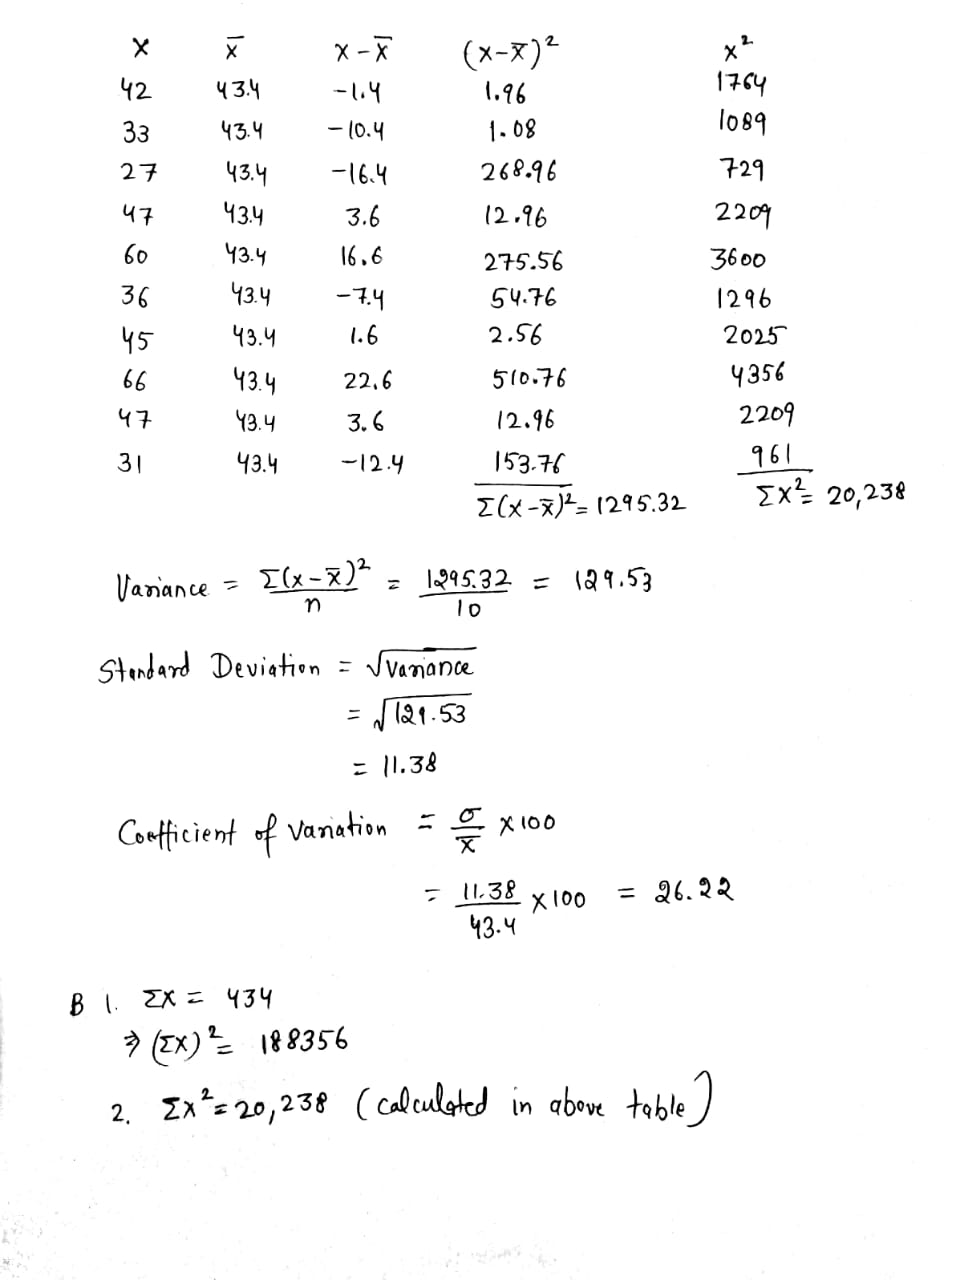 x x̄ x-x̄ (x-x̄)² x²
42 43.4 -1.4 1.96 1764
33 43.4 -10.4 1.08 1089
27 43.4 -16.4 268.96 729
47 43.4 3.6 12.96 2209
60 43.4 16.6 275.56 3600
36 43.4 -7.4 54.76 1296
45 43.4 1.6 2.56 2025
66 43.4 22.6 510.76 4356
47 43.4 3.6 12.96 2209
31 43.4 -12.4 153.76 961
Σ(x-x̄)² = 1295.32 Σx² = 20,238
Variance = Σ(x-x̄)²/n = 1295.32/10 = 129.53
Standard Deviation = √variance
= √129.53
= 11.38
Coefficient of variation = σ/x̄ X 100
= 11.38/43.4 X 100 = 26.22
B 1. ΣX = 434
⇒ (ΣX)² = 188356
2. Σx² = 20,238 (calculated in above table)